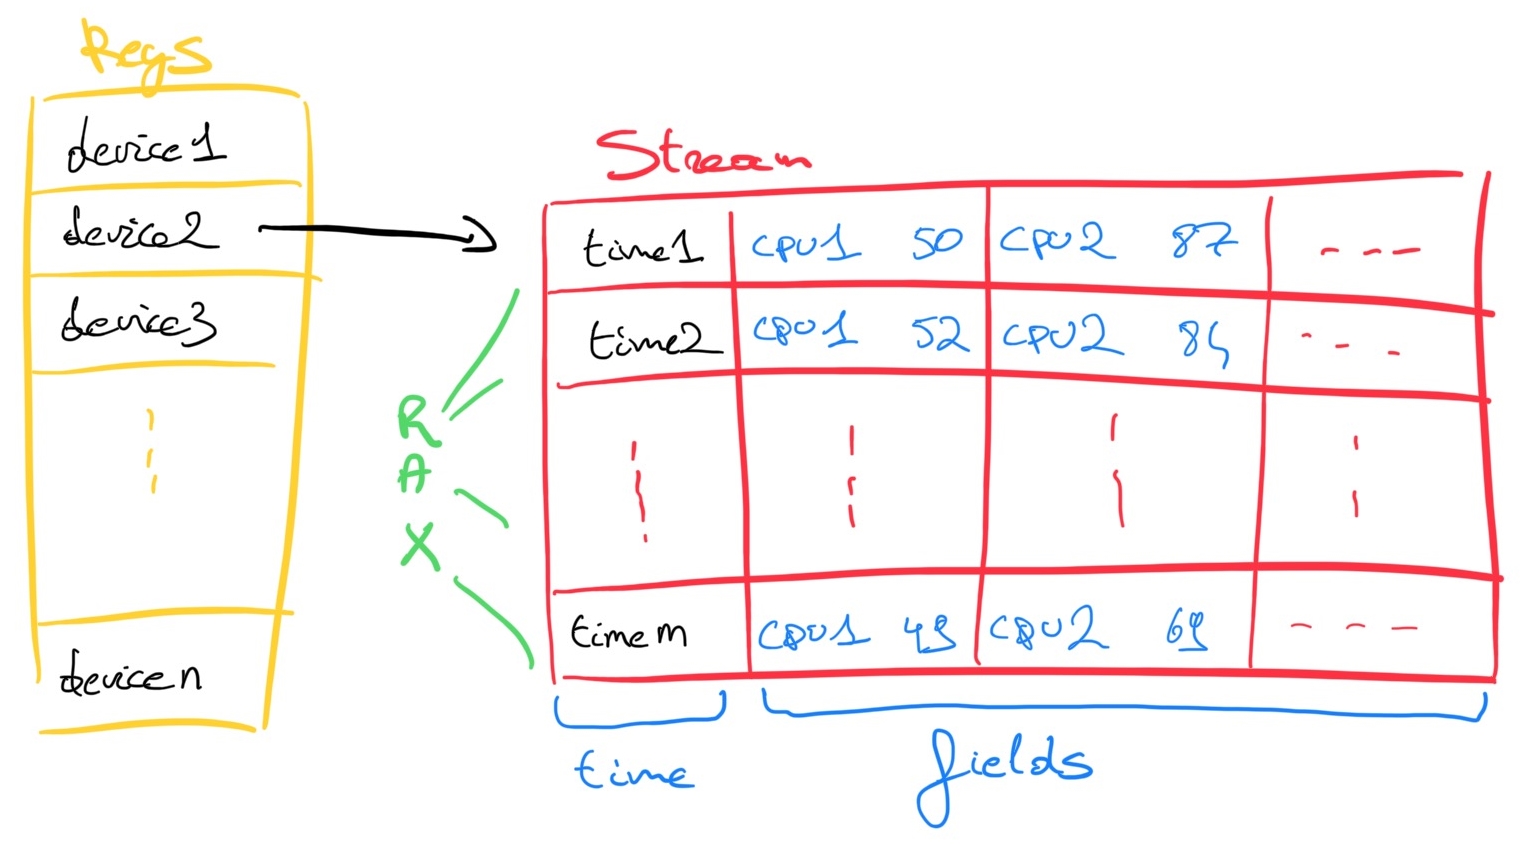 Regs
device1
device2
device3
devicen
R
A
X
Stream
time1 cpu1 50 cpu2 87 ---
time2 cpu1 52 cpu2 84 ---
timem cpu1 49 cpu2 69 ---
time
fields